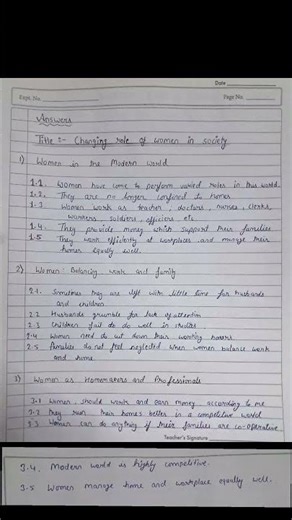 Date
Expt. No.
Page No.
Answers
Title :- Changing role of women in society
1) Women in the Modern World
1.1. Women have come to perform varied roles in this world.
1.2. They are no longer confined to homes
1.3 Women work as teacher, doctors, nurses, clerks,
workers, soldiers, officers etc.
1.4. They provide money which support their families
1.5 They work efficiently at workplaces and manage their
homes equally well.
2) Women: Balancing work and family
2.1. Sometimes they are left with little time for husbands
and children
2.2 Husbands grumble for lack of attention
2.3 Children fail to do well in studies
2.4 Women need to cut down their working hours
2.5 Families do not feel neglected when women balance work
and home.
3) Women as Homemakers and Professionals
3.1 Women should work and earn money according to me
3.2 they run their homes better in a competitive world
3.3 Women can do anything if their families are co-operative
Teacher's Signature
3.4. Modern world is highly competitive.
3.5 Women manage home and workplace equally well.